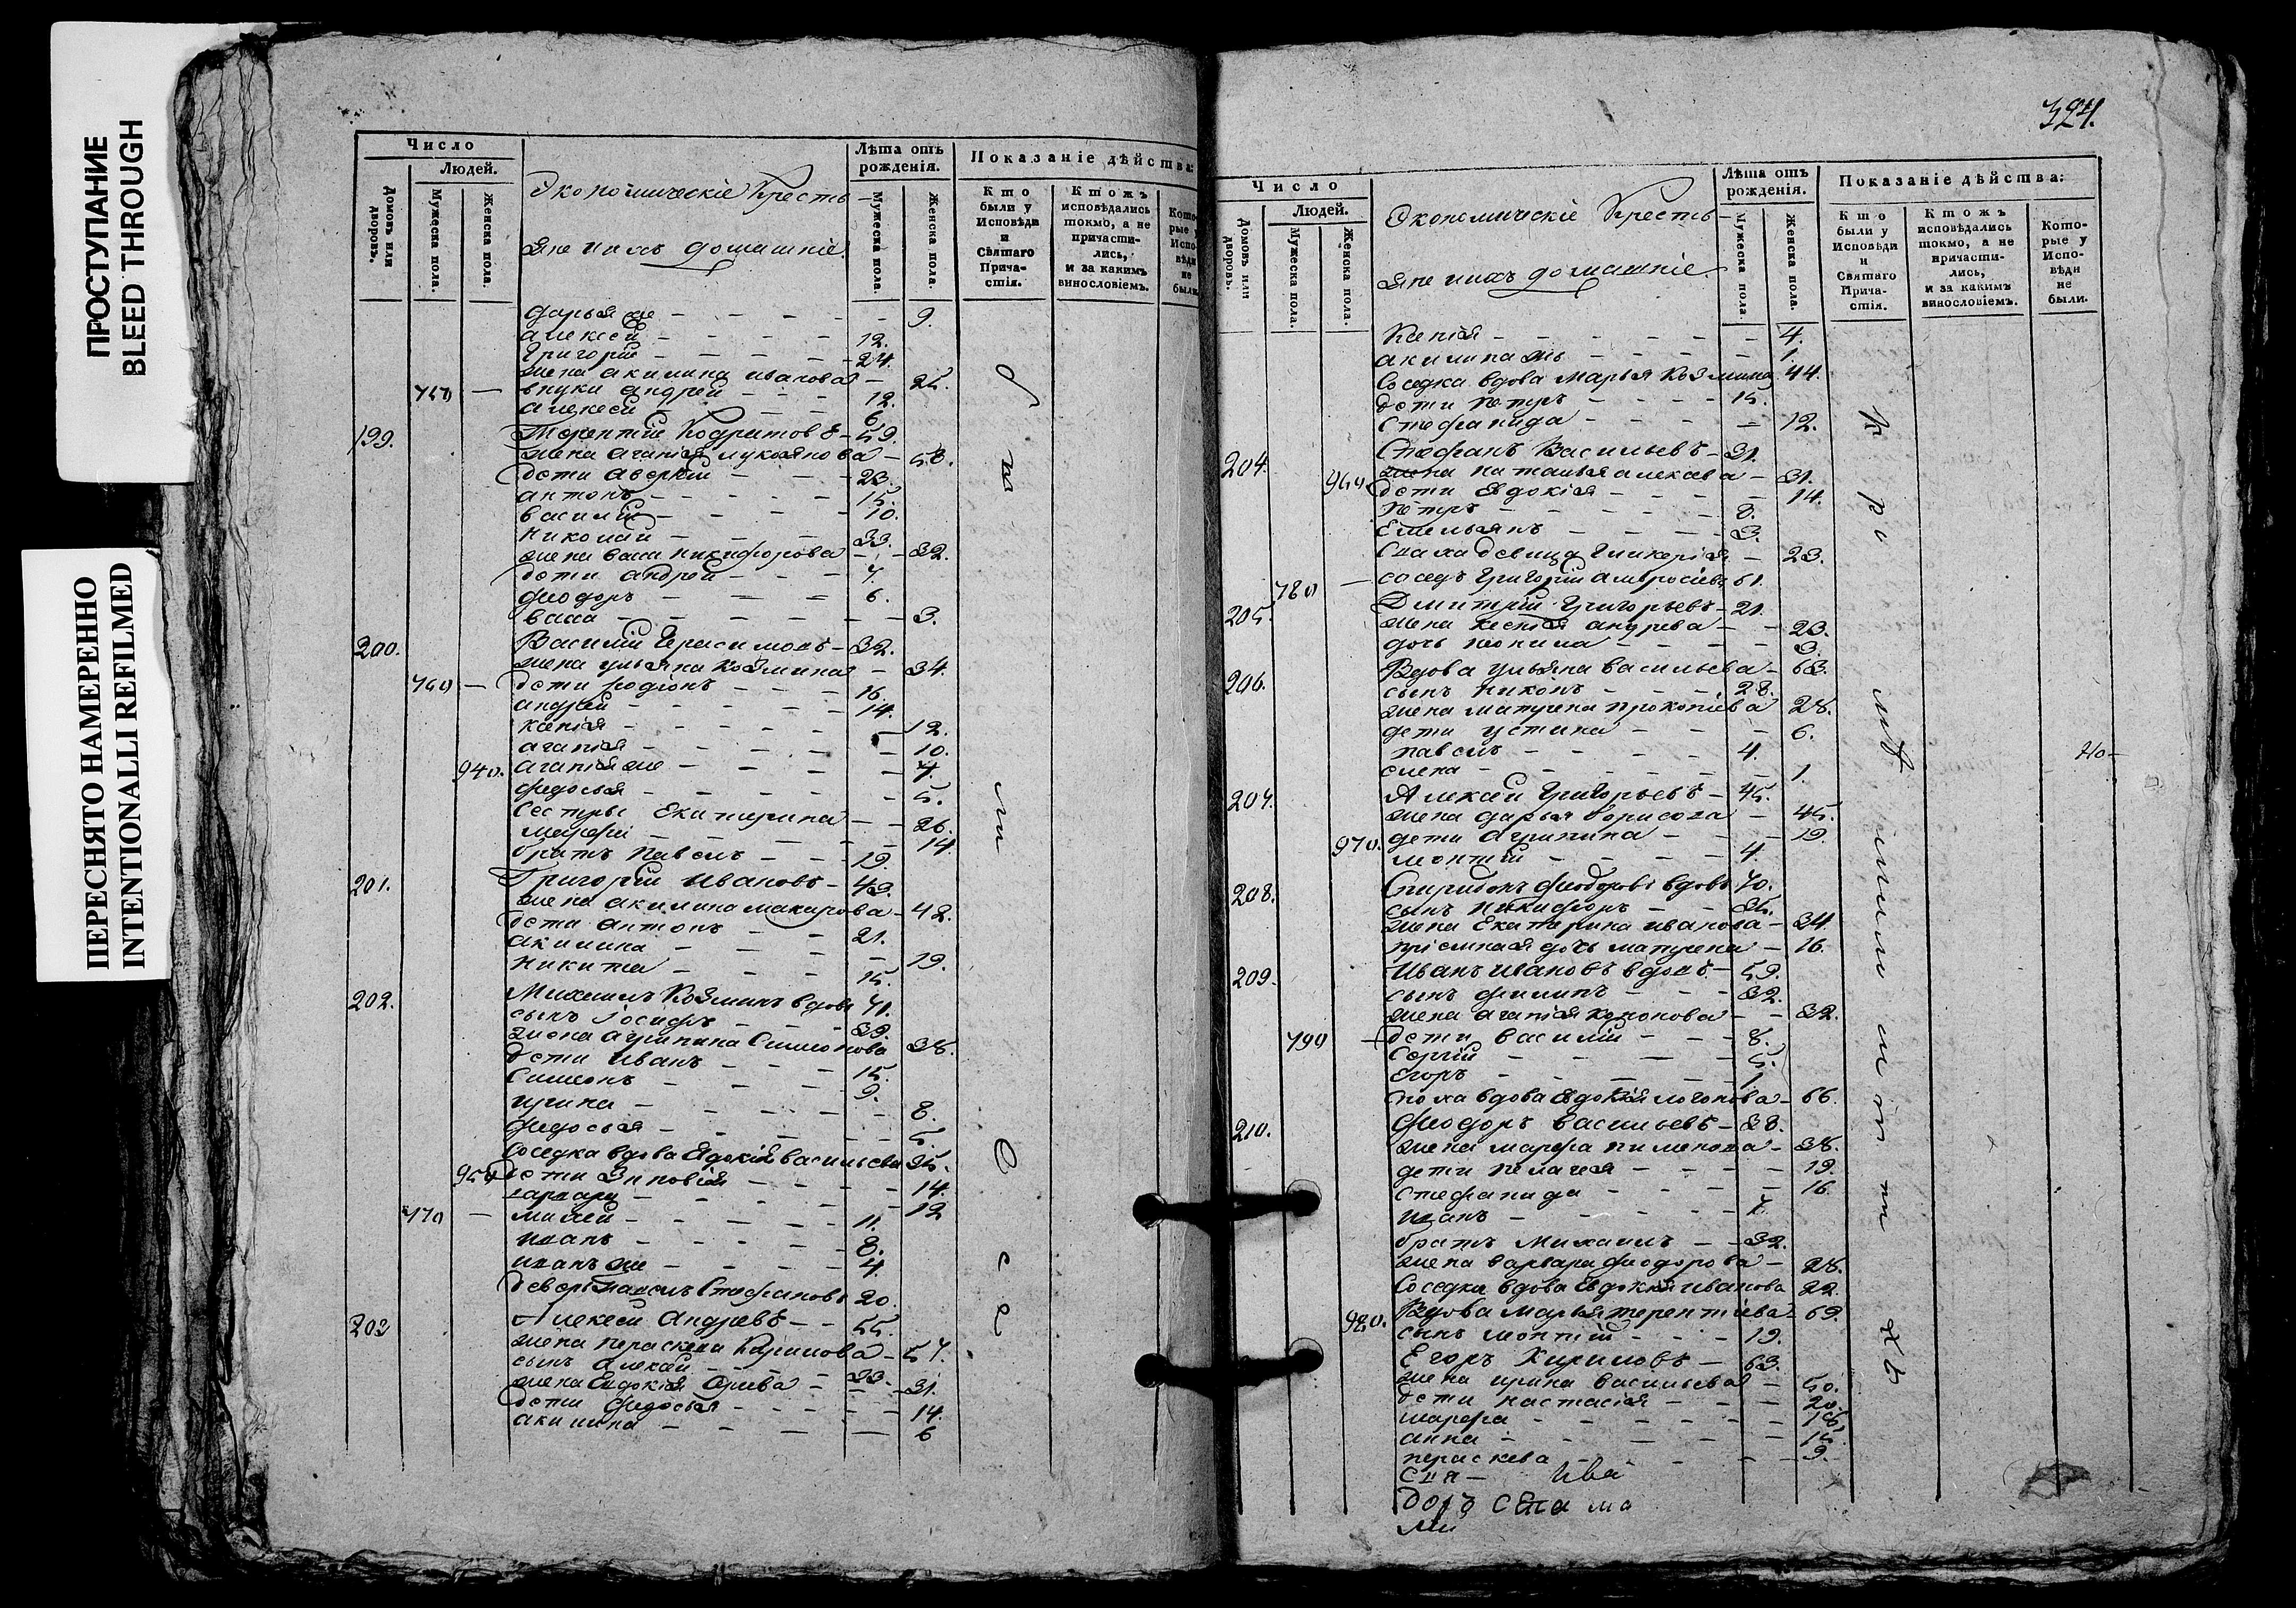 ПРОСТУПАНИЕ
BLEED THROUGH
ПЕРЕСНЯТО НАМЕРЕННО
INTENTIONALLI REFILMED
Число
Людей.
Домовъ или дворовъ.
Мужеска пола.
Женска пола.
Экономическіе Кресть-
яне и ихъ домашніе
Лѣта отъ рожденія.
Мужеска пола.
Женска пола.
Показаніе дѣйства:
Кто были у Исповѣди и Святаго Прича-стія.
Ктожъ исповѣдались токмо, а не причасти-лись, и за какимъ винословіемъ.
Кото-рые у Испо-вѣди не были.
дарья же - 9.
алексей - 12.
Григорие - 24.
жена акилина иванова - 25.
750 - внуки андрей - 12.
алексей - 6.
199. Терентие Кодратовъ - 59.
жена агапия лукоянова - 58.
дети аверкий - 23.
антонъ - 15.
василий - 10.
Николай - 33.
жена васса никифорова - 32.
дети андрей - 7.
феодоръ - 6.
васса - 3.
200. Василий Герасимовъ - 32.
жена ульяна Козмина - 34.
760 - дети родіонъ - 16.
андрей - 14.
ксенія - 12.
агапія - 10.
940. агапія же - 7.
федосья - 5.
сестры Екатерина - 26.
марфа - 14.
братъ Павелъ - 19.
201. Григорий Ивановъ - 49.
жена акилина макарова - 48.
дети антонъ - 21.
акилина - 19.
никита - 15.
202. Михаилъ Козминъ вдовъ 71.
сынъ Іосифъ - 39.
жена агрипина Симеонова 38.
дети иванъ - 15.
Симеонъ - 9.
ирина - 8.
федосья - 5.
соседка вдова Евдокія васильева 35.
950 дети Зиновія - 14.
варвара - 12
770 - михей - 11.
иванъ - 8.
иванъ же - 4.
деверь Павелъ Стефановъ 20.
203 Алексей Андревъ - 55.
жена параскева Кирилова - 57.
сынъ алексей - 33.
жена Евдокія - 31.
дети федосья - 14.
акилина - 6
324.
Число
Людей.
Домовъ или дворовъ.
Мужеска пола.
Женска пола.
Экономическіе Кресть-
яне и ихъ домашніе
Лѣта отъ рожденія.
Мужеска пола.
Женска пола.
Показаніе дѣйства:
Кто были у Исповѣди и Святаго Прича-стія.
Ктожъ исповѣдались токмо, а не причасти-лись, и за какимъ винословіемъ.
Кото-рые у Испо-вѣди не были.
Ксенія - 4.
акилина же - 1.
соседка вдова Марья Козмина 44.
дети Петръ - 15.
Стефанида - 12.
204. Стефанъ Васильевъ - 31.
жена наталья алексева - 31.
960 дети Евдокія - 14.
Петръ - 8.
Емельянъ - 3.
девица Гликерія - 23.
780 - соседъ Григорий амвросіевъ 61.
205. Дмитрий Григорьевъ - 21.
жена ксенія андрева - 23.
дочь неонила - 3.
206. Вдова ульяна васильева - 63.
сынъ никонъ - 28.
жена матрена прокопіева 28.
дети устина - 6.
павелъ - 4.
елена - 1.
207. Алексей Григорьевъ - 45.
жена дарья борисова - 45.
970. дети агрипина - 19.
леонтий - 4.
208. Спиридонъ феодоровъ вдовъ 70.
сынъ никифоръ - 35.
жена Екатерина иванова - 34.
пріемная дочь матрена - 16.
209. Иванъ ивановъ вдовъ - 59.
сынъ филипъ - 32.
жена агапія кононова - 32.
790 - дети василий - 8.
Сергий - 5.
Егоръ - 1.
вдова Евдокія логонова - 66.
210. Феодоръ васильевъ - 38.
жена марфа пименова - 38.
дети пелагея - 19.
стефанида - 16.
иванъ - 7.
братъ Михаилъ - 32.
жена варвара феодорова - 28.
соседка вдова Евдокія иванова 22.
980. Вдова Марья терентіева - 69.
сынъ леонтий - 19.
Егоръ Кириловъ - 63.
жена ирина васильева - 50.
дети настасія - 20.
марфа - 18
анна - 15
параскева - 9.